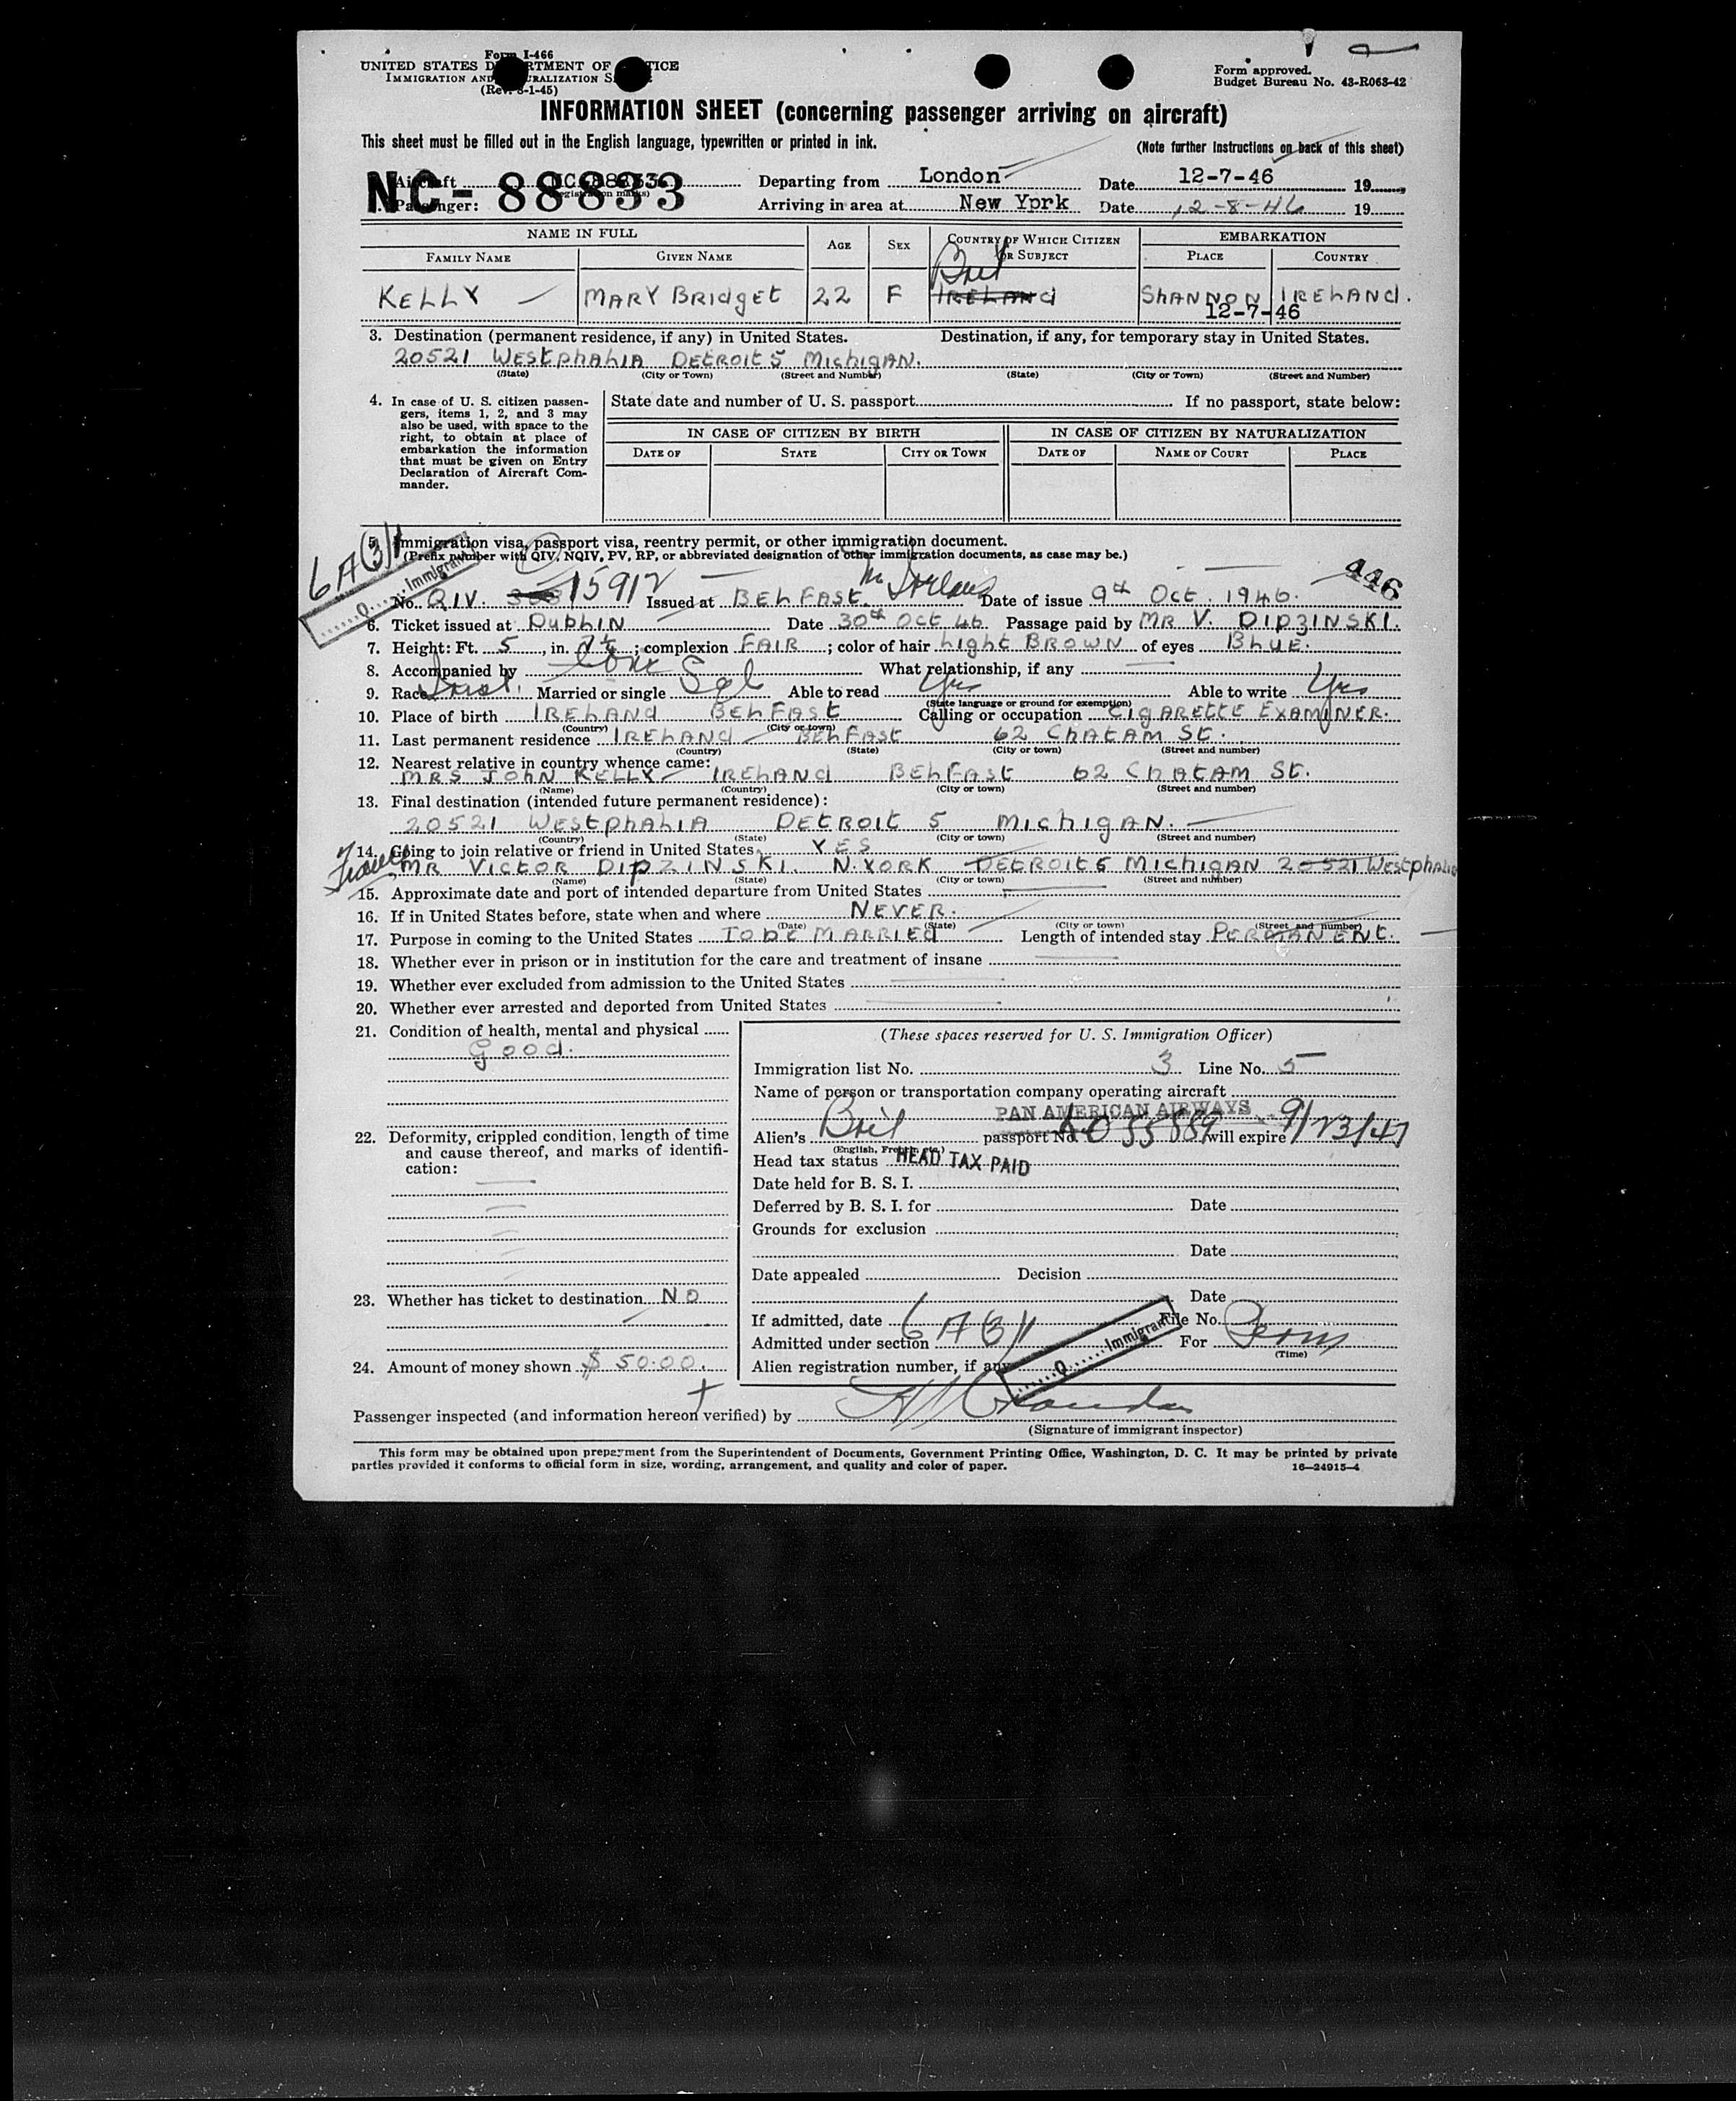 Form I-466
UNITED STATES DEPARTMENT OF JUSTICE
IMMIGRATION AND NATURALIZATION S
(Rev. 8-1-45)
Form approved.
Budget Bureau No. 43-R063-42
INFORMATION SHEET (concerning passenger arriving on aircraft)
This sheet must be filled out in the English language, typewritten or printed in ink.
(Note further instructions on back of this sheet)
NC-88833
Aircraft NC 88833 Departing from London Date 12-7-46 19
(registration marks)
1. Passenger: Arriving in area at New Yprk Date 12-8-46 19
NAME IN FULL AGE SEX COUNTRY OF WHICH CITIZEN OR SUBJECT EMBARKATION
FAMILY NAME GIVEN NAME PLACE COUNTRY
Brit
KELLY MARY BRIdgEt 22 F IRELANd SHANNON IRELANd.
12-7-46
3. Destination (permanent residence, if any) in United States. Destination, if any, for temporary stay in United States.
20521 WEStphALIA DEtROIt 5 MichigAN.
(State) (City or Town) (Street and Number) (State) (City or Town) (Street and Number)
4. In case of U. S. citizen passengers, items 1, 2, and 3 may also be used, with space to the right, to obtain at place of embarkation the information that must be given on Entry Declaration of Aircraft Commander.
State date and number of U. S. passport If no passport, state below:
IN CASE OF CITIZEN BY BIRTH IN CASE OF CITIZEN BY NATURALIZATION
DATE OF STATE CITY OR TOWN DATE OF NAME OF COURT PLACE
6A(3)
Q Immigrant
5. Immigration visa, passport visa, reentry permit, or other immigration document.
(Prefix number with QIV, NQIV, PV, RP, or abbreviated designation of other immigration documents, as case may be.)
446
No. QIV. 15912 Issued at BELFASt. N Ireland Date of issue 9th Oct. 1946.
6. Ticket issued at DUbLIN Date 30th OCt 46 Passage paid by MR V. DIPZINSKI.
7. Height: Ft. 5, in. 7½; complexion FAIR; color of hair Light BROWN of eyes BLUE.
8. Accompanied by alone What relationship, if any
9. Race Irish. Married or single Sgl Able to read Yes Able to write Yes
(State language or ground for exemption)
10. Place of birth IRELANd BELFASt Calling or occupation CIgAREttE EXAMINER.
(Country) (City or town)
11. Last permanent residence IRELANd BELFASt 62 ChAtAM St.
(Country) (State) (City or town) (Street and number)
12. Nearest relative in country whence came:
MRS JOHN KELLY IRELANd BELFASt 62 ChAtAM St.
(Name) (Country) (City or town) (Street and number)
13. Final destination (intended future permanent residence):
20521 WEStphALIA DEtROIt 5 MichigAN.
(Country) (State) (City or town) (Street and number)
14. Going to join relative or friend in United States YES
MR VICtOR DIPZINSKI. N.YORK DEtROIt 5 MichigAN 20521 WEStphALIA
(Name) (State) (City or town) (Street and number)
15. Approximate date and port of intended departure from United States
16. If in United States before, state when and where NEVER.
(Date) (State) (City or town) (Street and number)
17. Purpose in coming to the United States TO bE MARRIEd Length of intended stay PERMANENt.
18. Whether ever in prison or in institution for the care and treatment of insane
19. Whether ever excluded from admission to the United States
20. Whether ever arrested and deported from United States
21. Condition of health, mental and physical
good.
22. Deformity, crippled condition, length of time and cause thereof, and marks of identification:
23. Whether has ticket to destination NO
24. Amount of money shown $ 50.00.
(These spaces reserved for U. S. Immigration Officer)
Immigration list No. 3 Line No. 5
Name of person or transportation company operating aircraft
PAN AMERICAN AIRWAYS
Alien's Brit passport No. will expire 9/23/47
(English, French, etc.)
Head tax status HEAD TAX PAID
Date held for B. S. I.
Deferred by B. S. I. for Date
Grounds for exclusion
Date
Date appealed Decision
Date
If admitted, date File No.
Admitted under section 6A(3) For Perm
(Time)
Alien registration number, if any
Q Immigrant
Passenger inspected (and information hereon verified) by
(Signature of immigrant inspector)
This form may be obtained upon prepayment from the Superintendent of Documents, Government Printing Office, Washington, D. C. It may be printed by private
parties provided it conforms to official form in size, wording, arrangement, and quality and color of paper.
16—24915-4